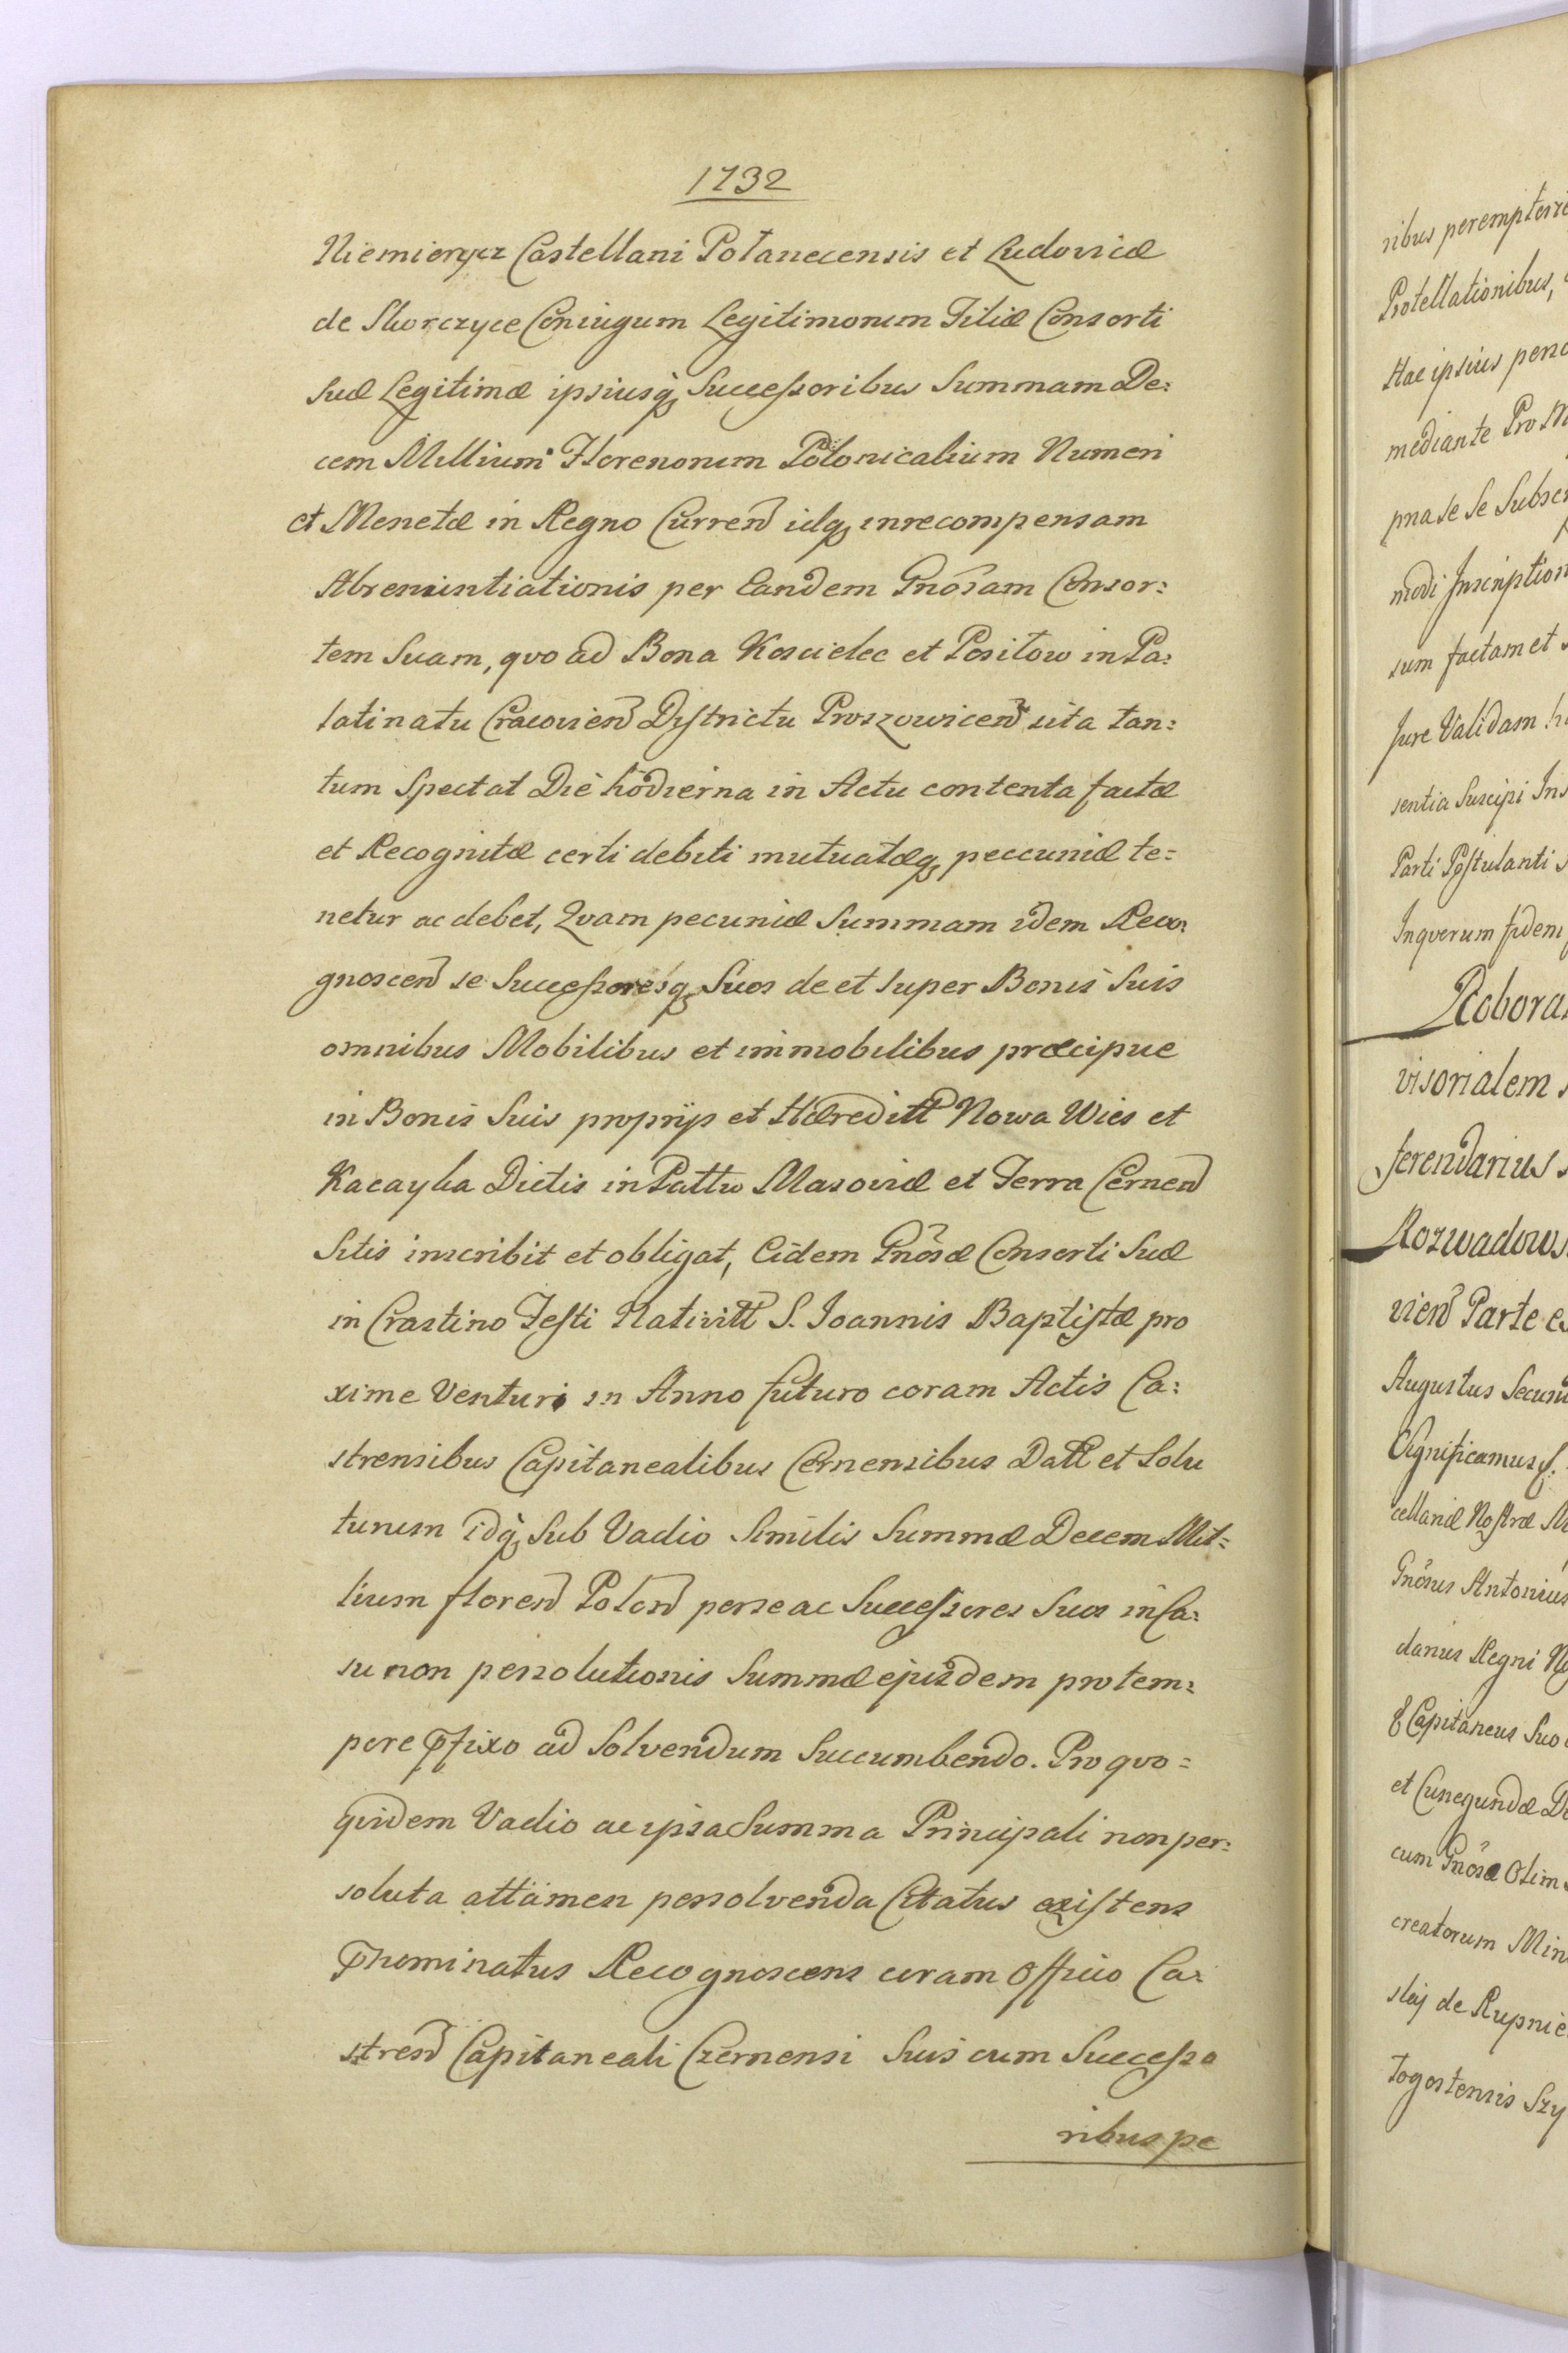 1732
Niemierycz Castellani Połanecensis et Ludovicæ
de Skorczyce Coniugum Legitimorum Filiæ Consorti
suæ Legitimæ ipsiusq; Successoribus Summam De:
cem Millium Florenorum Polonicalium Numeri
et Monetæ in Regno Curren̄ idq; inrecompensam
Abrenuntiationis per Eandem Gnosam Consor:
tem Suam, qvo ad Bona Koscielec et Positow in Pa:
latinatu Cracovien̄ Districtu Proszowicen̄ sita tan:
tum Spectat Die hodierna in Actu contenta factæ
et Recognitæ certi debiti mutuatæq; peccuniæ te=
netur ac debet, Qvam pecuniæ Summam idem Reco:
gnoscen̄ se Successoresq; Suos de et super Bonis Suis
omnibus Mobilibus et immobilibus præcipue
in Bonis Suis proprijs et Hæreditt Nowa Wies et
Kacayka Dictis in Pattu Masoviæ et Terra Cernen̄
Sitis inscribit et obligat, Eidem Gnosæ Consorti Suæ
in Crastino Festi Nativitt S. Joannis Baptistæ pro
xime Venturi in Anno futuro coram Actis Ca:
strensibus Capitanealibus Cernensibus Datt et Solu
turum idq; Sub Vadio Similis Summæ Decem Mil=
lium floren̄ Polon̄ perse ac Successores Suos in Ca:
su non persolutionis Summæ ejusdem pro tem:
pore p̄fixo ad Solvendum Succumbendo. Pro qvo=
qvidem Vadio ac ipsa Summa Principali non per:
soluta attamen persolvenda Citatus existens
p̄nominatus Recognoscens coram Officio Ca:
stren̄ Capitaneali Czernensi Suis cum Successo
ribus pe
ribus perempterie
Protellationibus,
Hac ipsius
mediante Pro
pna se se
modi Inscription
sum factam et
Jure Validam
sentia Suscipi
Parti Postulanti
Inqverum fidem
Robora
visorialem
ferendarius
Rozwadows
vien̄ Parte
Augustus Secund
Significamus
cellariæ Nostræ
Gnosus Antonius
danus Regni
& Capitaneus Suo
et Cunegundæ
cum Gnosæ Olim
creatorum Min
skij de Rupnie
togostensis Szy